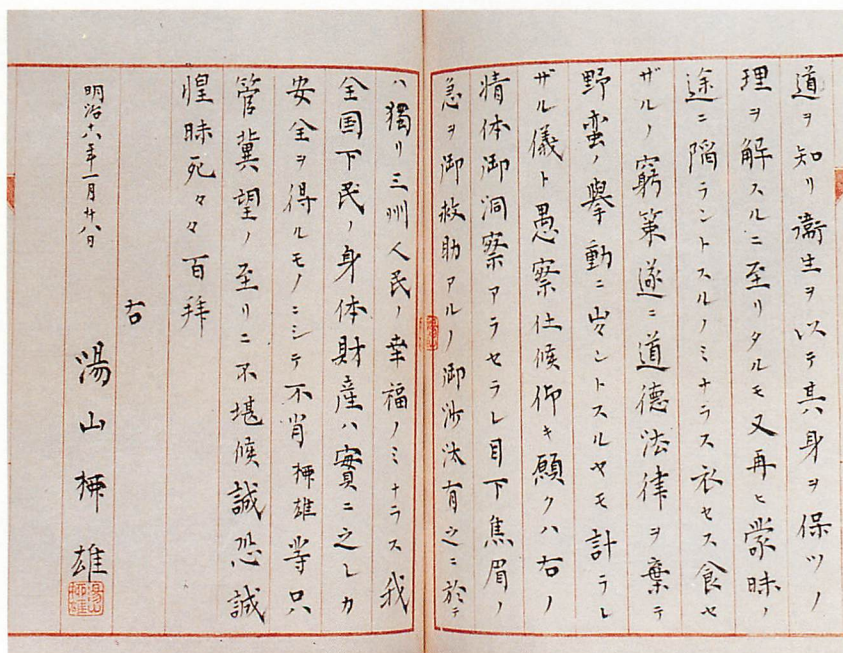 道ヲ知リ衞生ヲ以テ其身ヲ保ツノ
理ヲ解スルニ至リタルモ又再ヒ蒙昧ノ
途ニ陥ラントスルノミナラス衣セス食セ
ザルノ窮策遂ニ道德法律ヲ棄テ
野蛮ノ擧動ニ出ントスルヤモ計ラレ
ザル儀ト愚察仕候仰キ願クハ右ノ
情体御洞察アラセラレ目下焦眉ノ
急ヲ御救助アルノ御沙汰有之ニ於テ
ハ獨リ三州人民ノ幸福ノミナラス我
全国下民ノ身体財産ハ實ニ之レカ
安全ヲ得ルモノニシテ不肖柳雄等只
管冀望ノ至リニ不堪候誠恐誠
惶昧死々々百拝
右
明治十八年一月廿八日
湯山柳雄